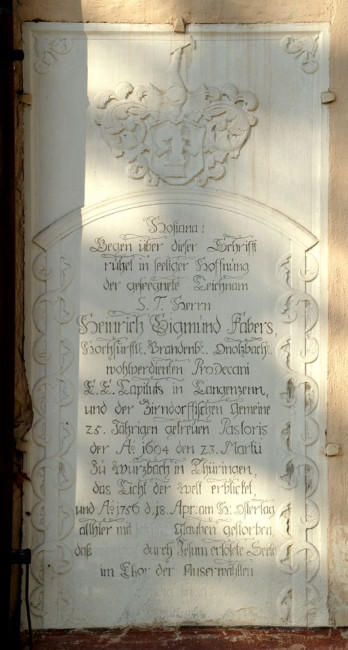 Hosiana!
Gegen über dieser Schrifft
ruhet in seeliger Hoffnung
der geseegnete Leichnam
S. T. Herrn
Heinrich Sigmund Fabers,
Hochfürstl. Brandenb. Onolzbach.
wohlverdienten ProDecani
E. E. Capituls in Langenzenn,
und der Zirndorffischen Gemeine
25. Jährigen getreuen Pastoris
der A. 1694 den 23. Martii
Zu Wurzbach in Thüringen,
das Licht der Welt erblicket
und A. 1756 d. 18. Apr. am H. Ostertag
allhier mit Glauben gestorben,
daß durch Jesum erlößte Seele
im Chor der Auserwählten